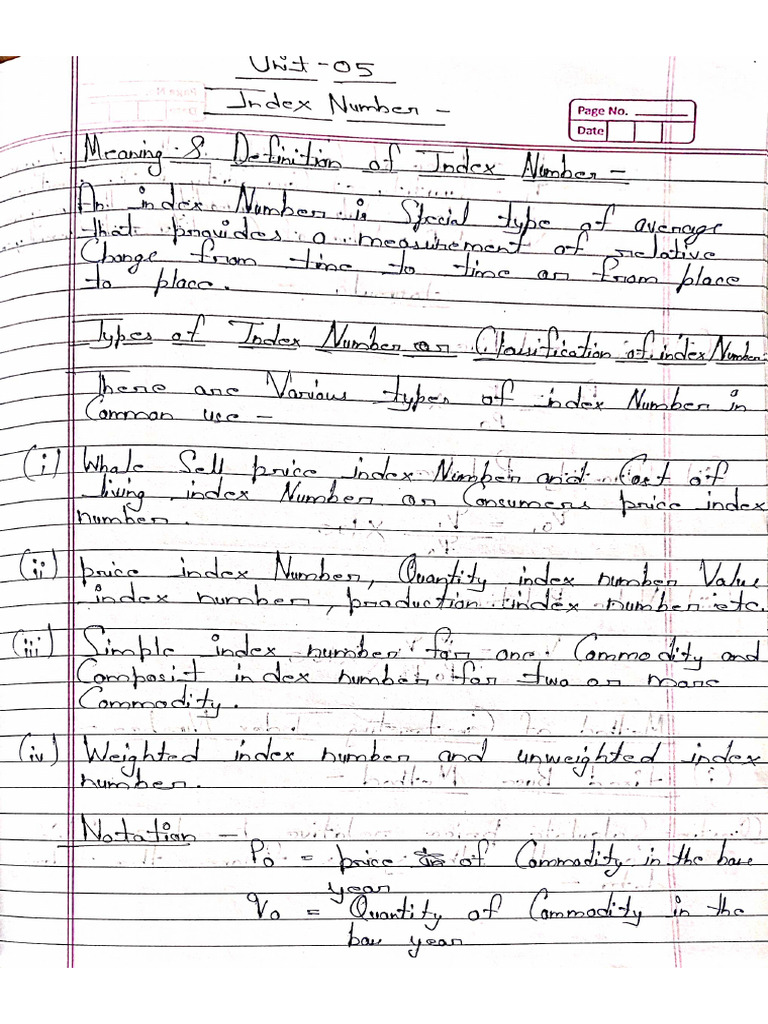 Unit - 05
Index Number -
Page No.
Date
Meaning & Definition of Index Number -
An index Number is Special type of average
that provides a measurement of relative
Change from time to time or from place
to place.
Types of Index Number or Classification of index Number
There are Various types of index Number in
Common use -
(i) Whole Sell price index Number and Cost of
living index Number or Consumers price index
number.
(ii) price index Number, Quantity index number Value
index number, production index number etc.
(iii) Simple index number for one Commodity and
Composit index number for two or more
Commodity.
(iv) Weighted index number and unweighted index
number.
Notation -
P0 = price of Commodity in the base
year
q0 = Quantity of Commodity in the
base year